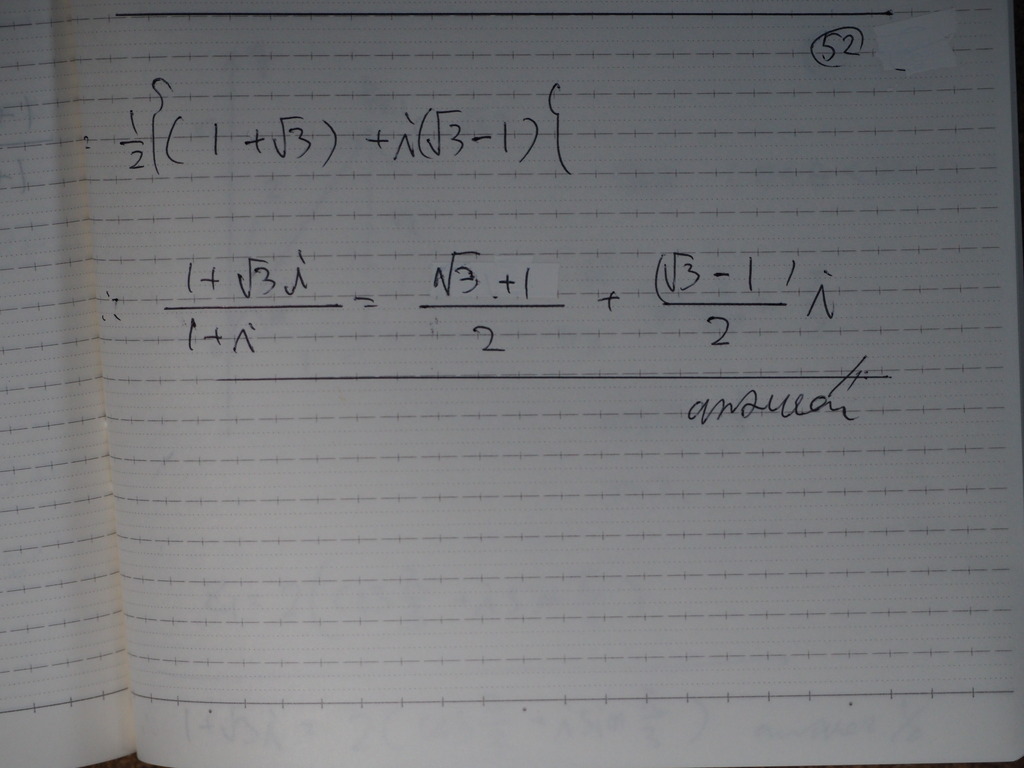 52
= 1/2 { ( 1 + √3 ) + i(√3 - 1) {
∴ (1 + √3 i)/(1 + i) = (√3 + 1)/2 + (√3 - 1)/2 i
answer